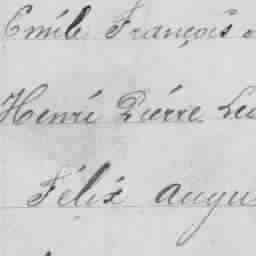 Emile François
Henri Pierre
Félix